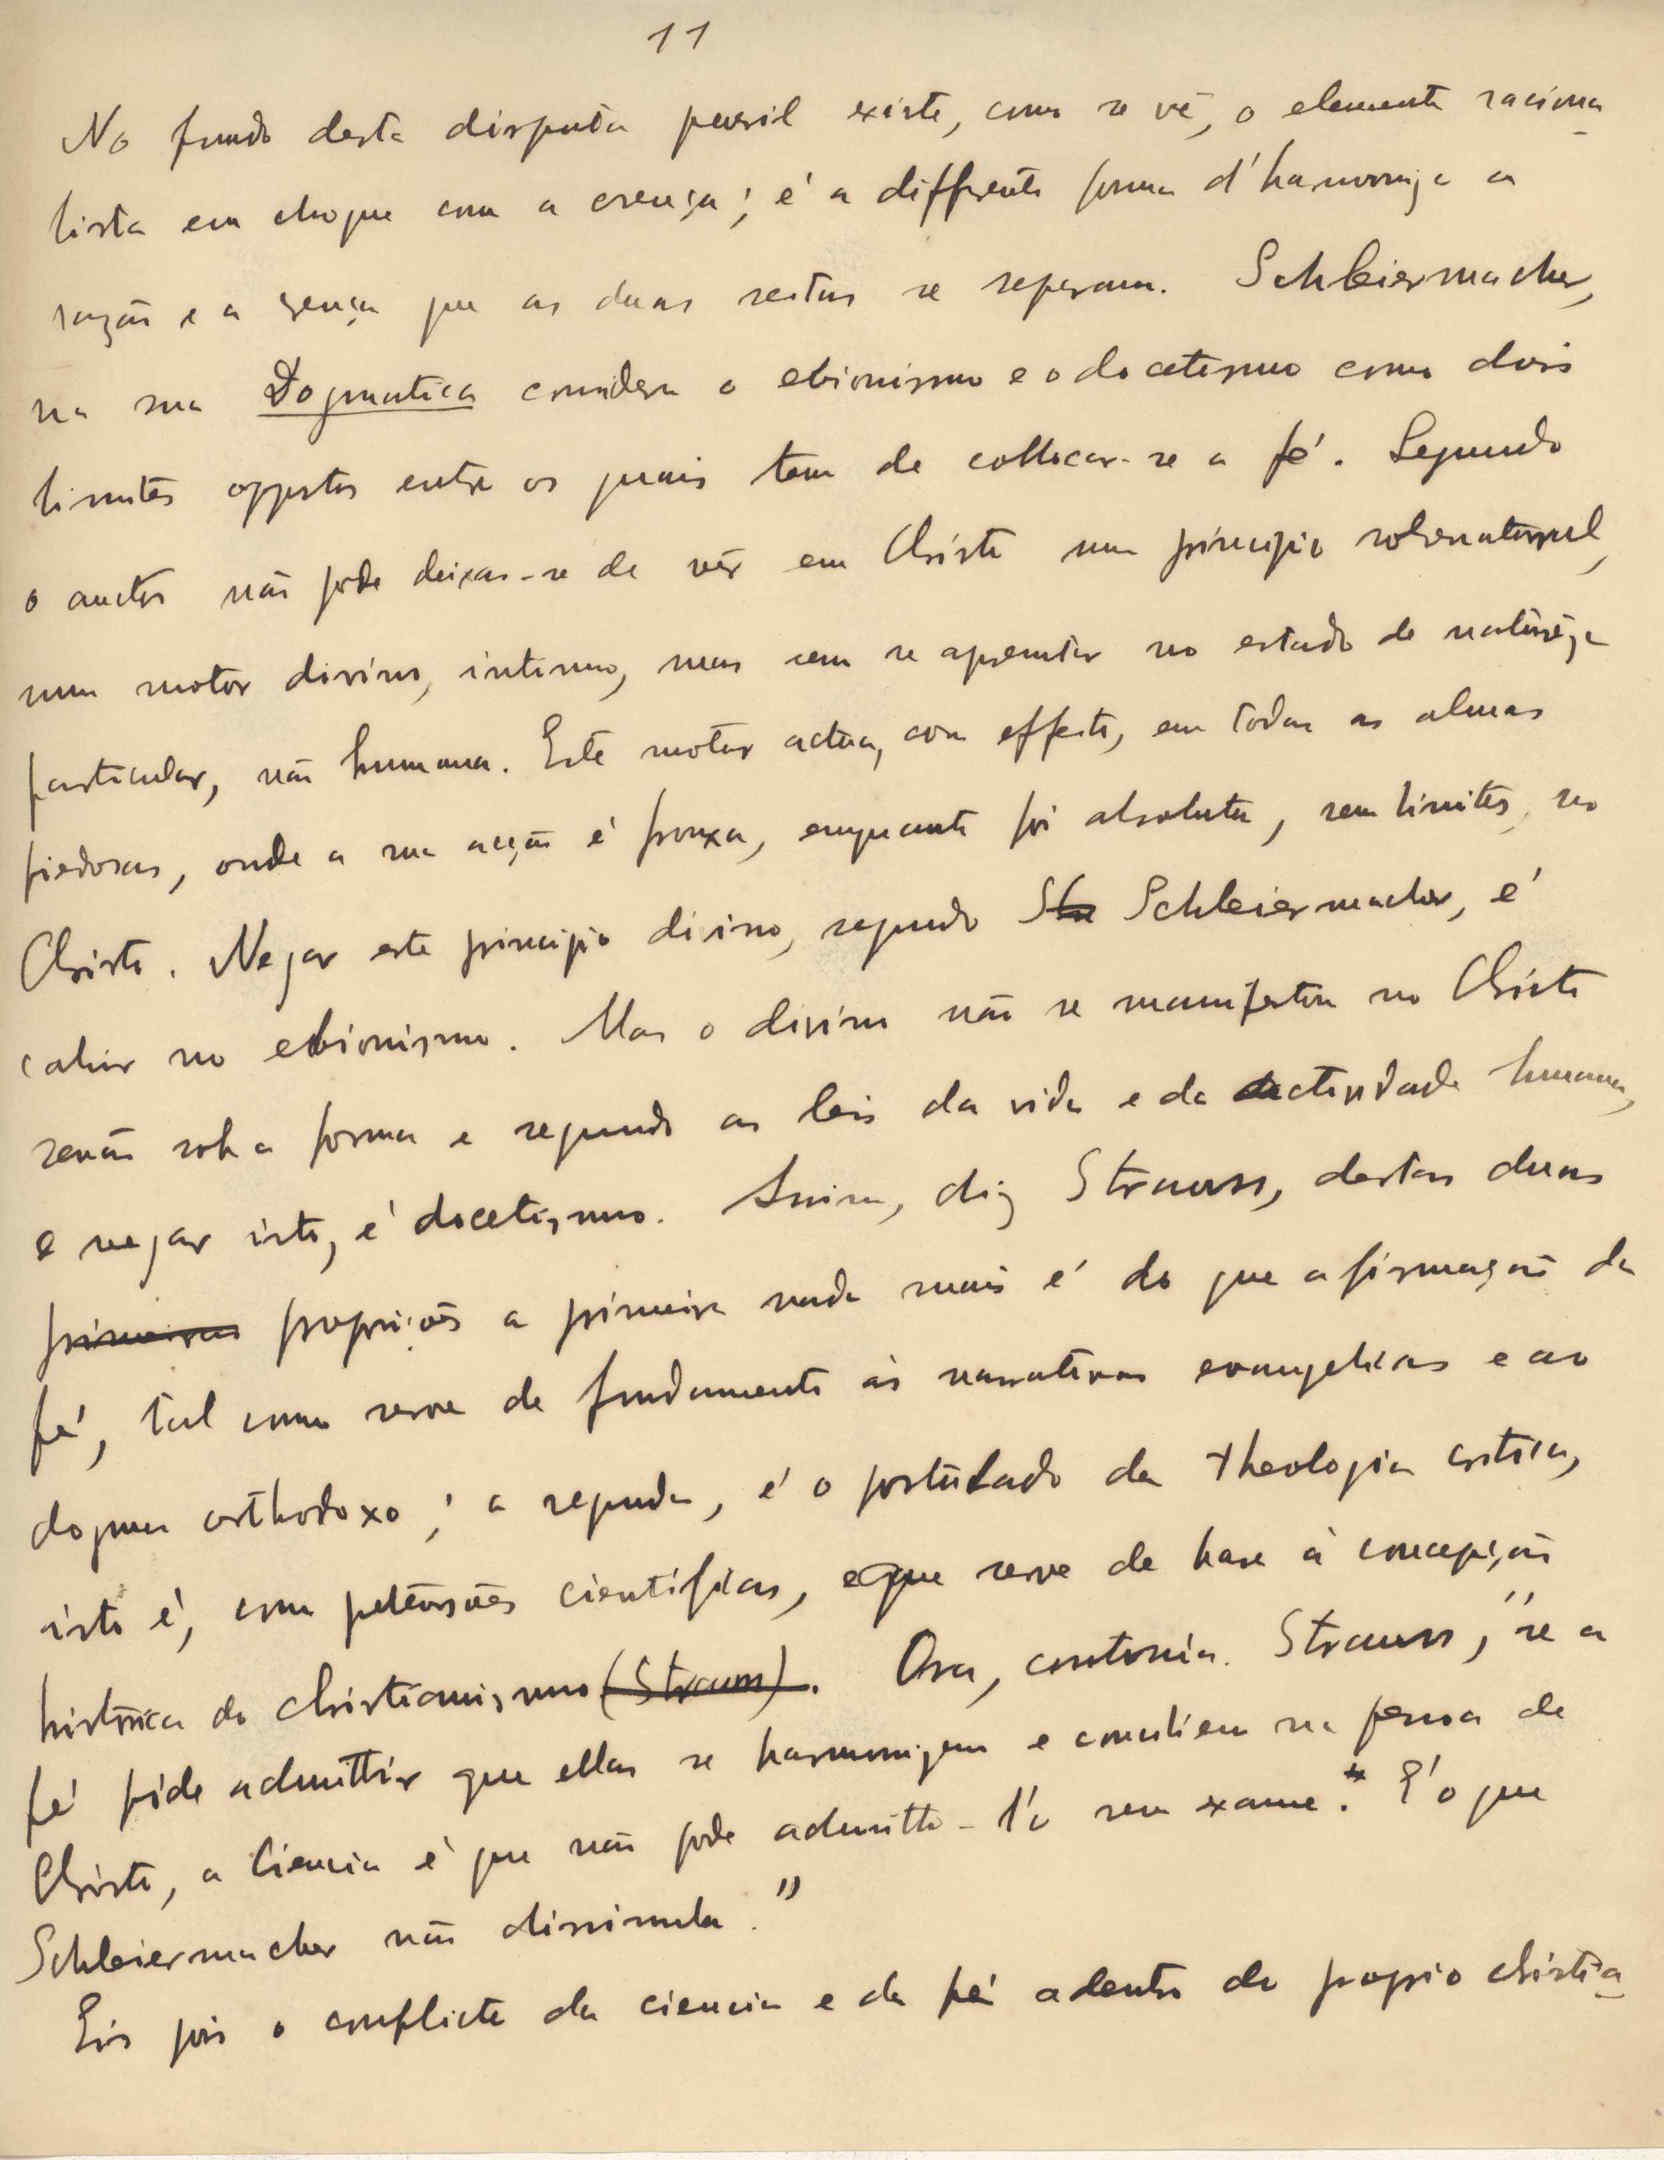 11
No fundo desta disputa pueril existe, como se vê, o elemento raciona
lista em choque com a crença; é a differente forma d'harmoniza a
razão e a crença que as duas seitas se separam. Schleiermacher,
na sua Dogmatica considera o ebionismo e o docetismo como dois
limites oppostos entre os quais tem de collocar-se a fé. Segundo
o auctor não pode deixar-se de vêr em Christo um principio sobrenatural,
num motor divino, intimo, mas sem se apresentar no estado de natureza
particular, não humana. Este motor actua, com effeito, em todas as almas
piedosas, onde a sua acção é frouxa, emquanto foi absoluta, sem limites, no
Christo. Negar este principio divino, segundo Schleiermacher, é
cahir no ebionismo. Mas o divino não se manifestou no Christo
senão sob a forma e segundo as leis da vida e da actividade humana,
e negar isto, é docetismo. Assim, diz Strauss, destas duas
primeiras proposições a primeira nada mais é do que a firmação da
fé, tal como serve de fundamento às narrativas evangelicas e ao
dogma orthodoxo; a segunda, é o postulado da theologia critica,
isto é, com petensões cientificas, e que serve de base à concepção
histórica do christianismo (Strauss). Ora, continúa Strauss, "se a
fé pide admittir que ellas se harmonizem e conciliem na pessoa de
Christo, a ciencia é que não pode admitti-l'o sem exame. É o que
Schleiermacher não dissimula."
Eis pois o conflicto da ciencia e da fé adentro do proprio christia